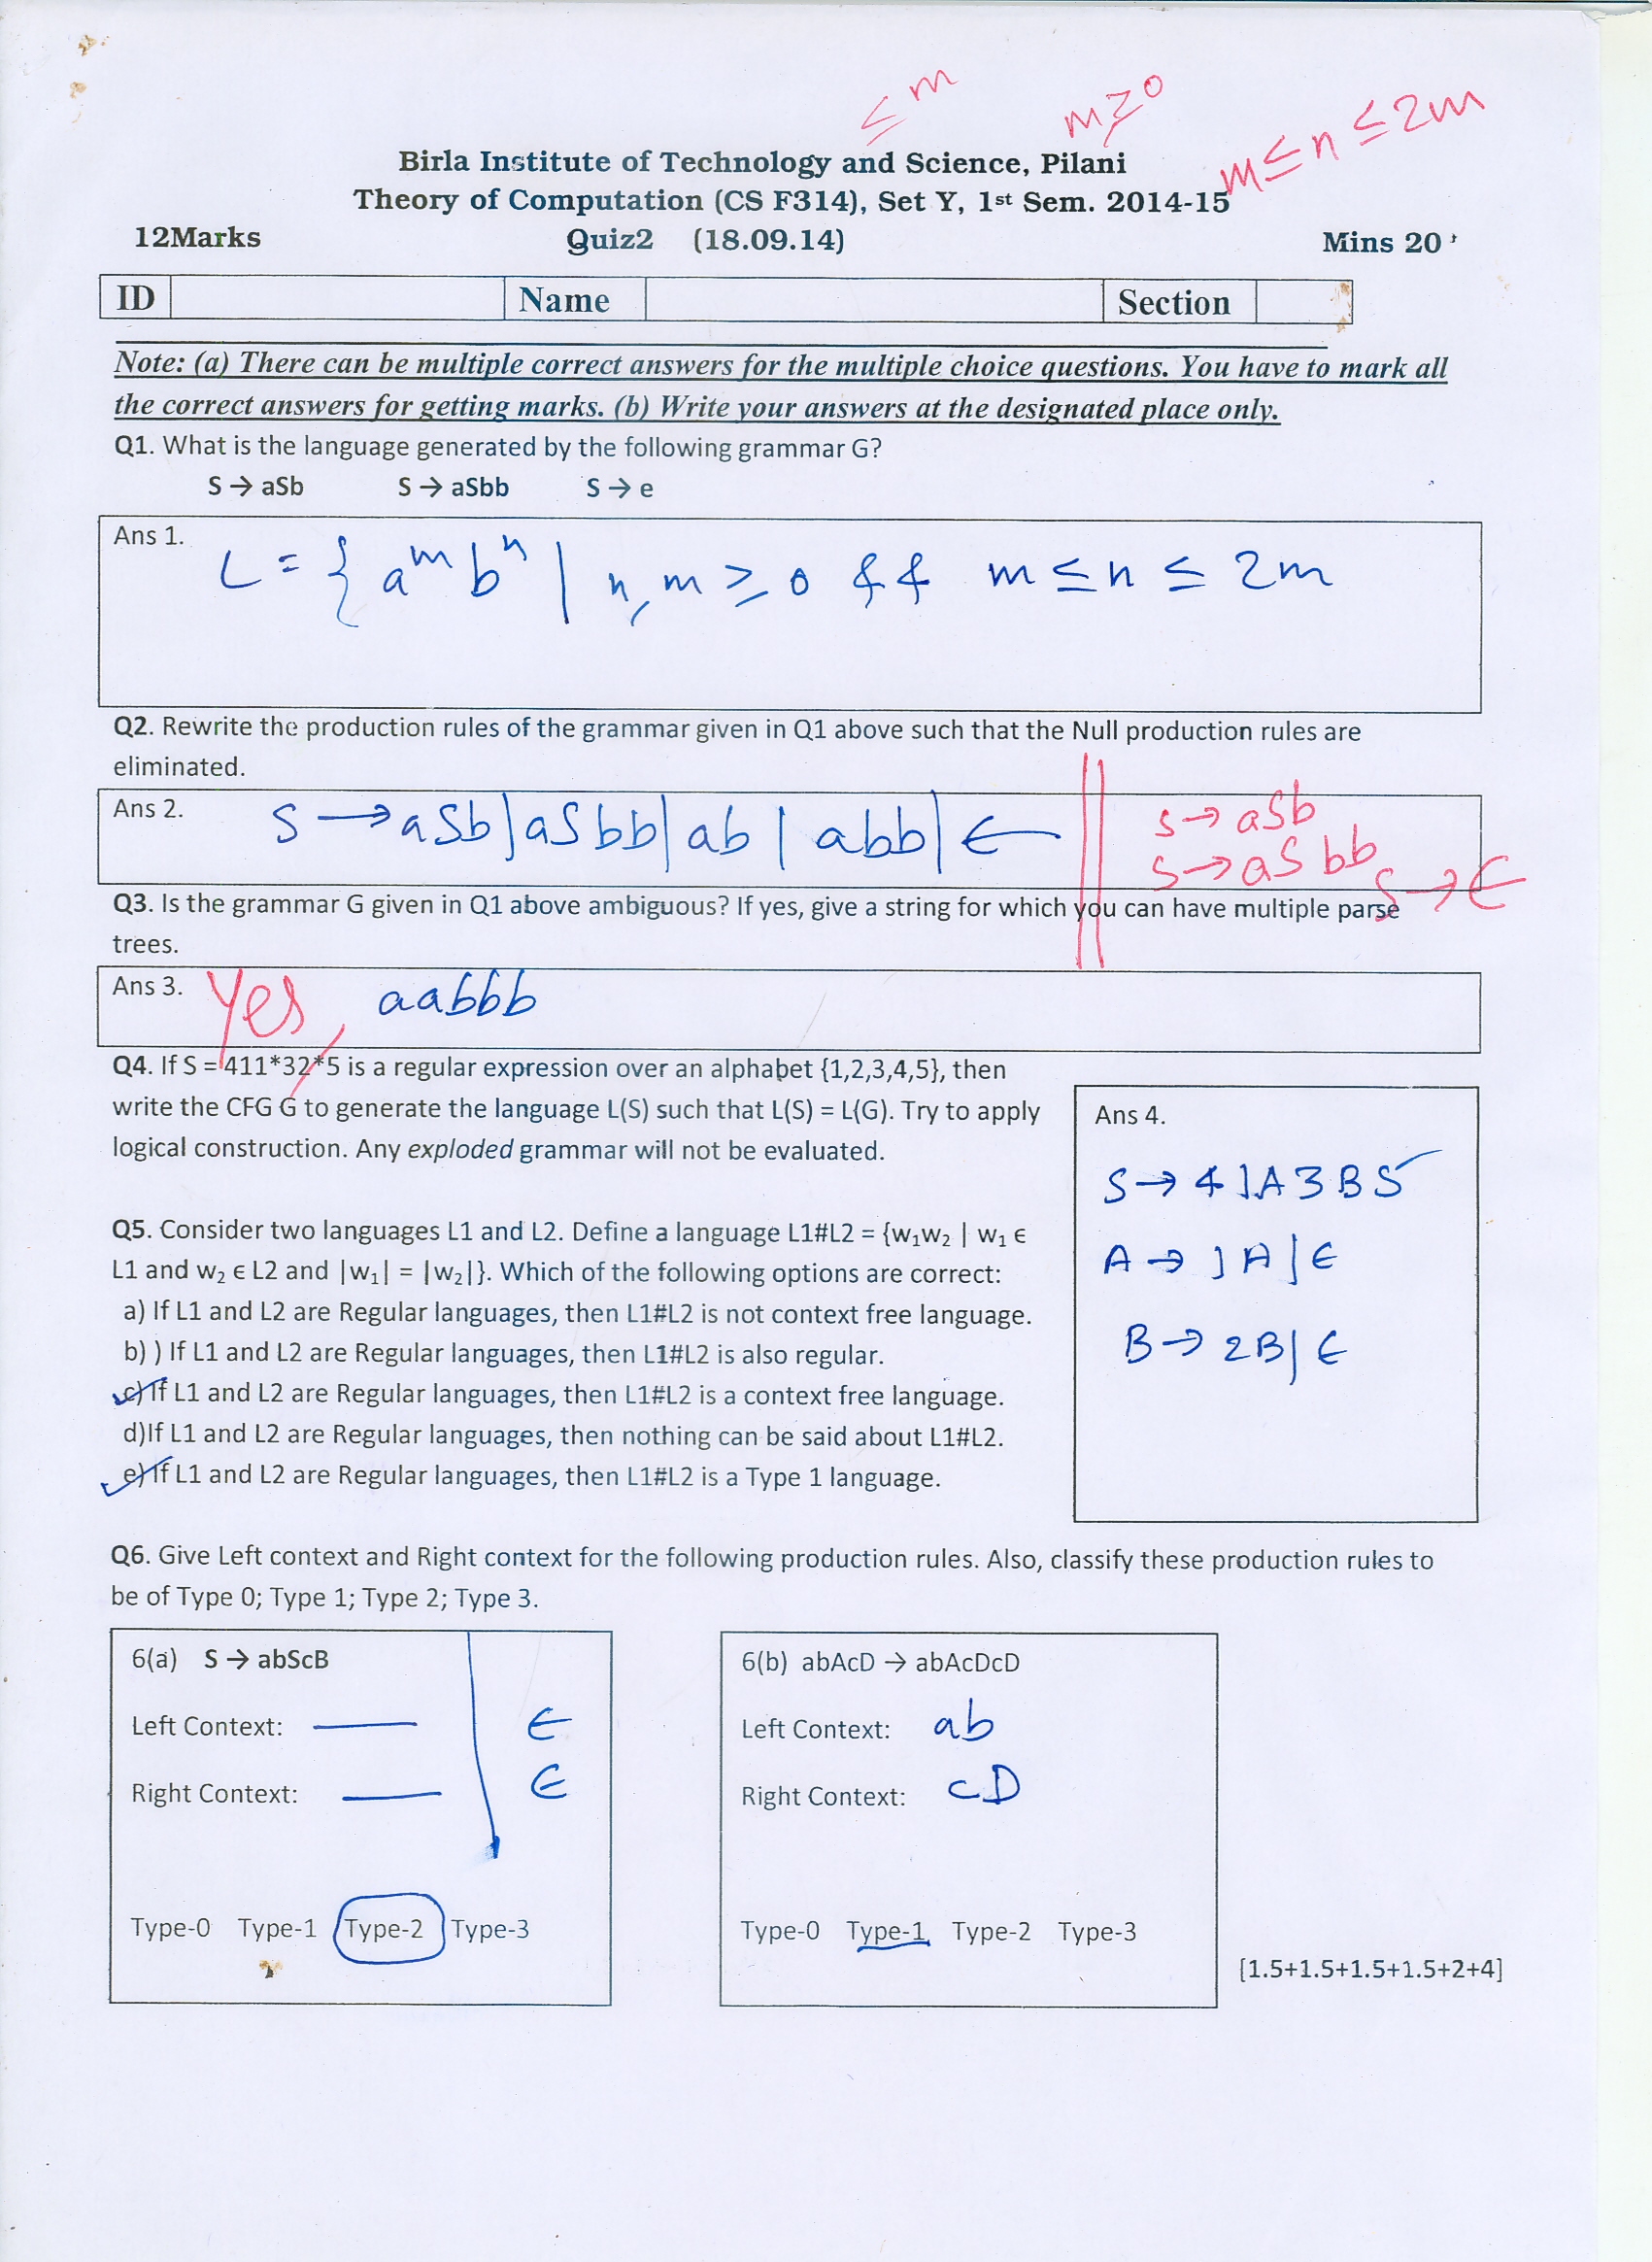 ≤ m m ≥ 0 m ≤ n ≤ 2m
Birla Institute of Technology and Science, Pilani
Theory of Computation (CS F314), Set Y, 1st Sem. 2014-15
12Marks Quiz2 (18.09.14) Mins 20
ID Name Section
Note: (a) There can be multiple correct answers for the multiple choice questions. You have to mark all
the correct answers for getting marks. (b) Write your answers at the designated place only.
Q1. What is the language generated by the following grammar G?
S → aSb S → aSbb S → e
Ans 1.
L = { a^m b^n | n, m ≥ 0 && m ≤ n ≤ 2m
Q2. Rewrite the production rules of the grammar given in Q1 above such that the Null production rules are
eliminated.
Ans 2. S → aSb | aSbb | ab | abb | ∈
S → aSb
S → aSbb
S → ∈
Q3. Is the grammar G given in Q1 above ambiguous? If yes, give a string for which you can have multiple parse
trees.
Ans 3. Yes, aabbb
Q4. If S = 411*32*5 is a regular expression over an alphabet {1,2,3,4,5}, then
write the CFG G to generate the language L(S) such that L(S) = L(G). Try to apply
logical construction. Any exploded grammar will not be evaluated.
Ans 4.
S → 41A3B5
A → 1A | ∈
B → 2B | ∈
Q5. Consider two languages L1 and L2. Define a language L1#L2 = {w₁w₂ | w₁ ϵ
L1 and w₂ ϵ L2 and |w₁| = |w₂|}. Which of the following options are correct:
a) If L1 and L2 are Regular languages, then L1#L2 is not context free language.
b) ) If L1 and L2 are Regular languages, then L1#L2 is also regular.
c) If L1 and L2 are Regular languages, then L1#L2 is a context free language.
d)If L1 and L2 are Regular languages, then nothing can be said about L1#L2.
e) If L1 and L2 are Regular languages, then L1#L2 is a Type 1 language.
Q6. Give Left context and Right context for the following production rules. Also, classify these production rules to
be of Type 0; Type 1; Type 2; Type 3.
6(a) S → abScB
Left Context: — ∈
Right Context: — ∈
Type-0 Type-1 Type-2 Type-3
6(b) abAcD → abAcDcD
Left Context: ab
Right Context: cD
Type-0 Type-1 Type-2 Type-3
[1.5+1.5+1.5+1.5+2+4]